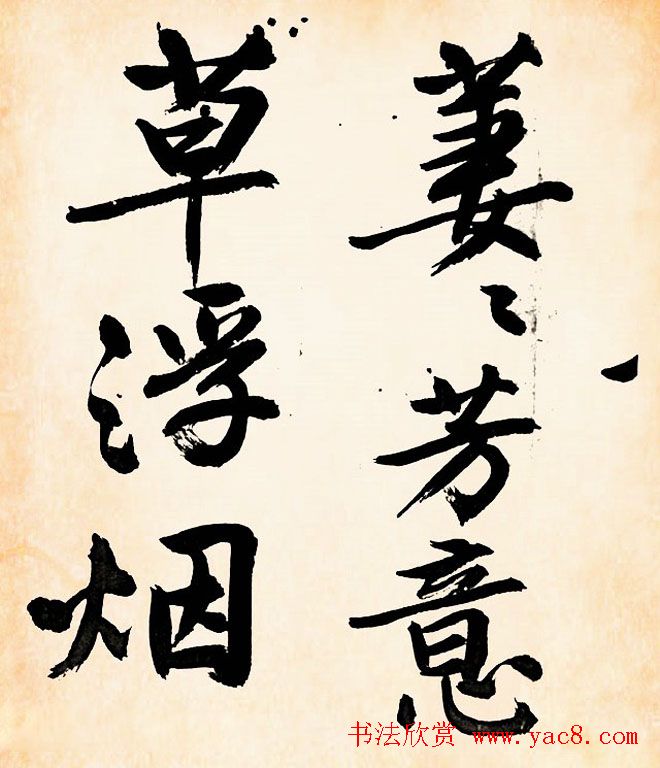 萋〻芳意
草浮烟
书法欣赏 www.yac8.com